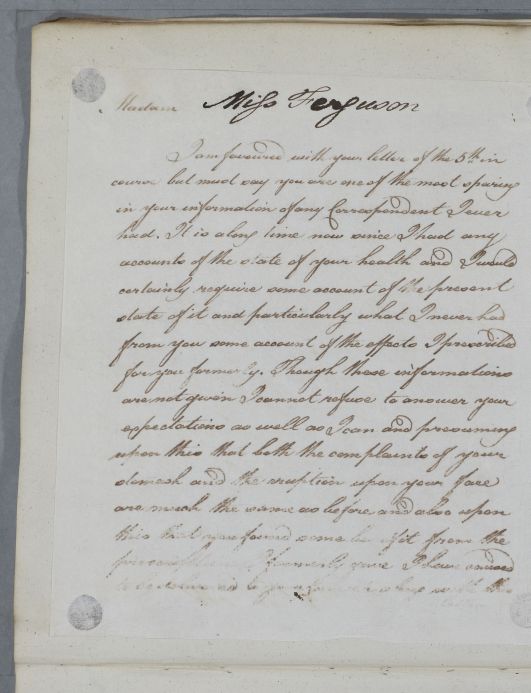 Madam Miss Ferguson
I am favoured with your letter of the 5th in
course but must say you are one of the most sparing
in your information of any Correspondent I ever
had. It is along time now since I had any
accounts of the state of your health and I would
certainly require some account of the present
state of it and particularly what I never had
from you some account of the effects I prescribed
for you formerly. Though these informations
are not given I cannot refuse to answer your
expectations as well as I can and presuming
upon this that both the complaints of your
stomach and the eruption upon your face
are much the same as before and also upon
this that you found some benefit from the
formerly gave I have